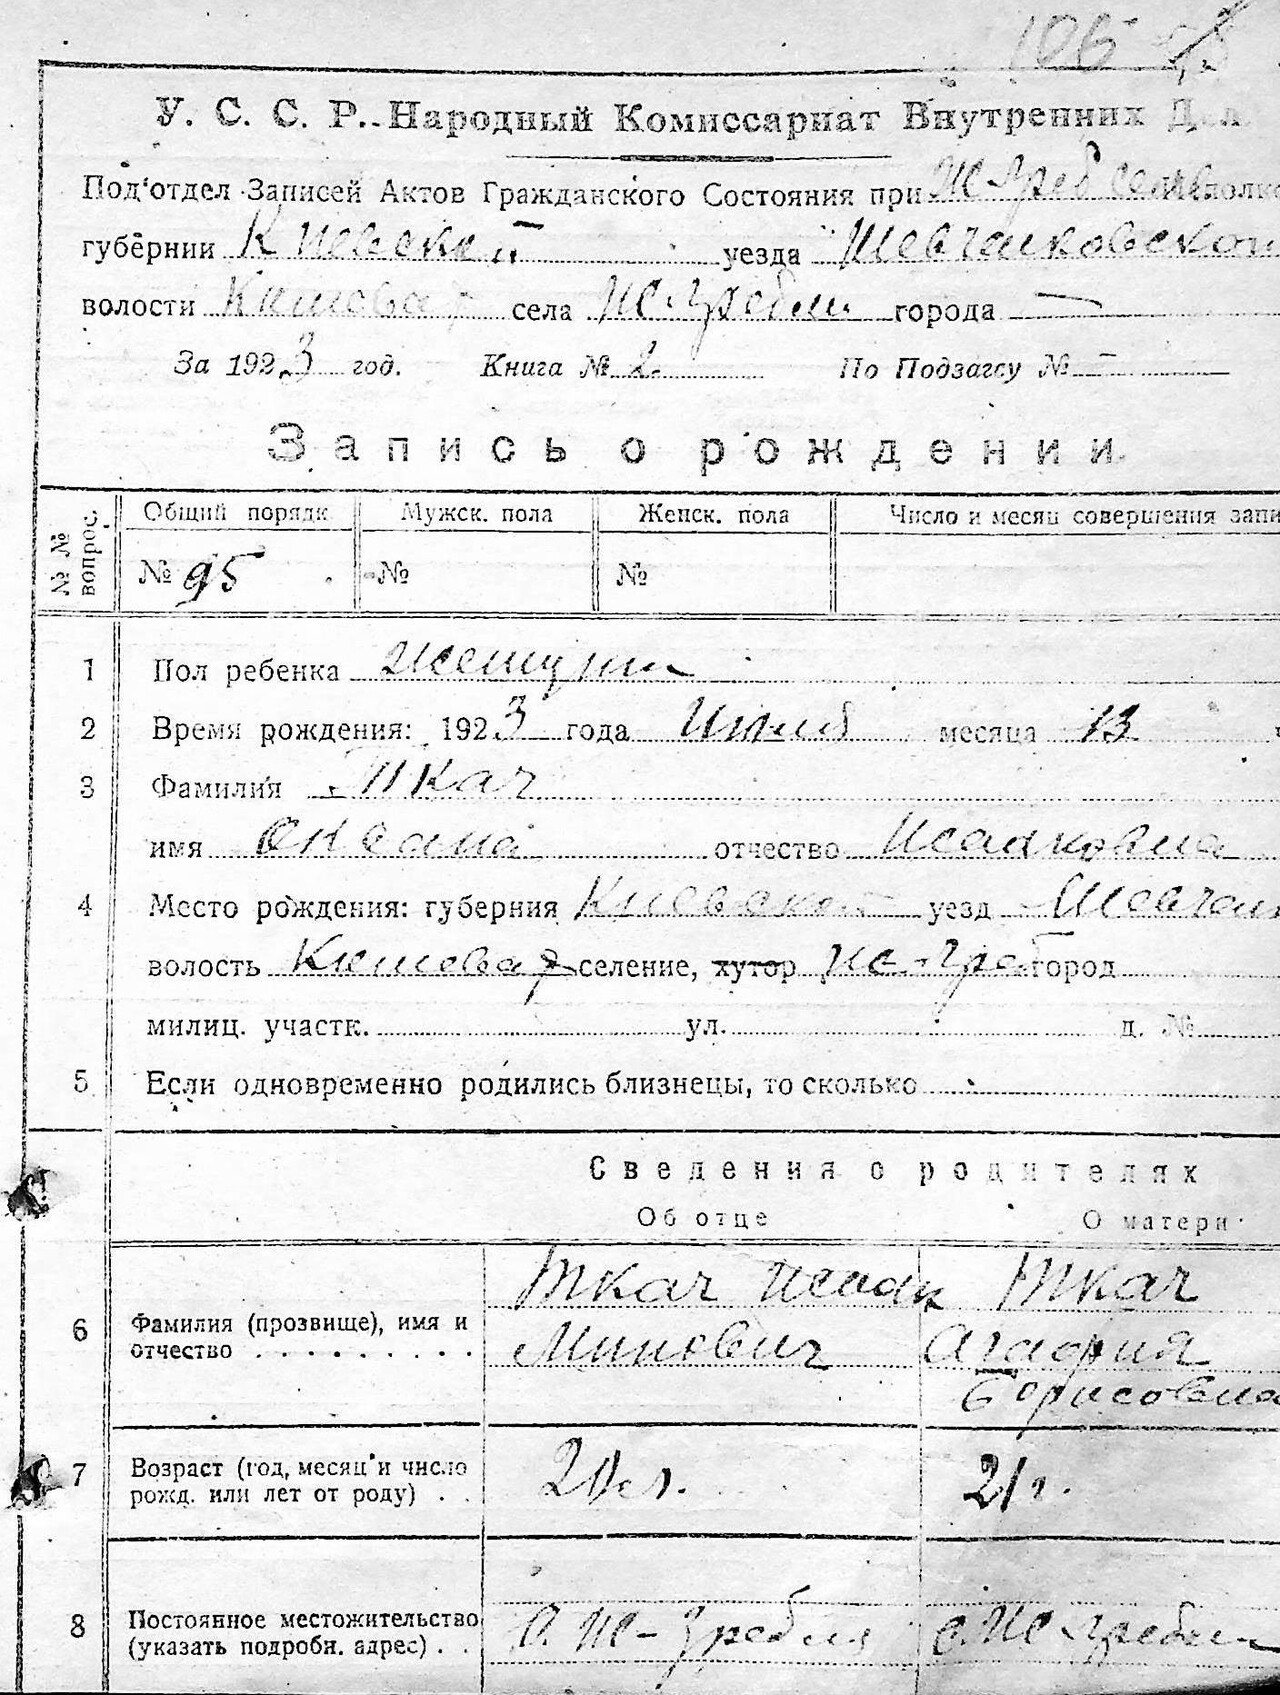 106
У. С. С. Р. Народный Комиссариат Внутренних Дел
Под'отдел Записей Актов Гражданского Состояния при Ж-Греб
губернии Киевской уезда Шевченковского
волости села Ж-Гребли города —
За 1923 год. Книга № 2 По Подзагсу № –
Запись о рождении
№№ вопрос.
Общий порядк. Мужск. пола Женск. пола Число и месяц совершения запи
№ 95 № №
1 Пол ребенка
2 Время рождения: 1923 года месяца 13
3 Фамилия Ткач
имя Оксана отчество Исааковна
4 Место рождения: губерния Киевской уезд Шевчен
волость селение, хутор Ж-Греб город
милиц. участк. ул. д. №
5 Если одновременно родились близнецы, то сколько
Сведения о родителях
Об отце О матери
6 Фамилия (прозвище), имя и отчество Ткач Исаак Минович Ткач Агафия Борисовна
7 Возраст (год, месяц и число рожд. или лет от роду) 21 г.
8 Постоянное местожительство (указать подробн. адрес) с. Ж-Гребля с. Ж-Гребля